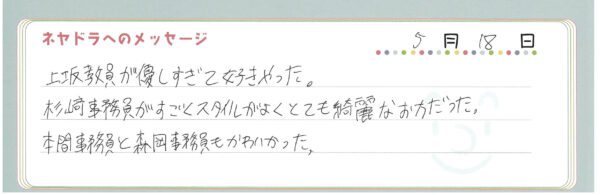 ネヤドラへのメッセージ
5月18日
上坂教員が優しすぎて好きやった。
杉崎事務員がすごくスタイルがよくとても綺麗なお方だった。
本間事務員と森岡事務員もかわいかった。